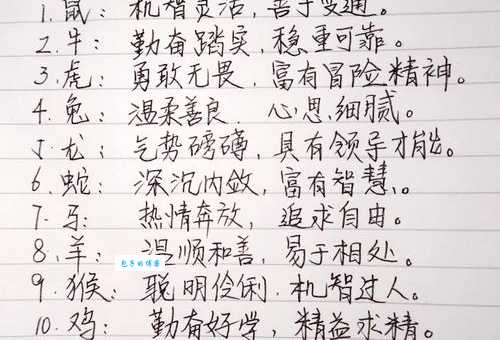 1.鼠：机智灵活，善于变通。
2.牛：勤奋踏实，稳重可靠。
3.虎：勇敢无畏，富有冒险精神。
4.兔：温柔善良，心思细腻。
5.龙：气势磅礴，具有领导才能。
6.蛇：深沉内敛，富有智慧。
7.马：热情奔放，追求自由。
8.羊：温顺和善，易于相处。
包子的情客
9.猴：聪明伶俐，机智过人。
10.鸡：勤奋好学，精益求精。